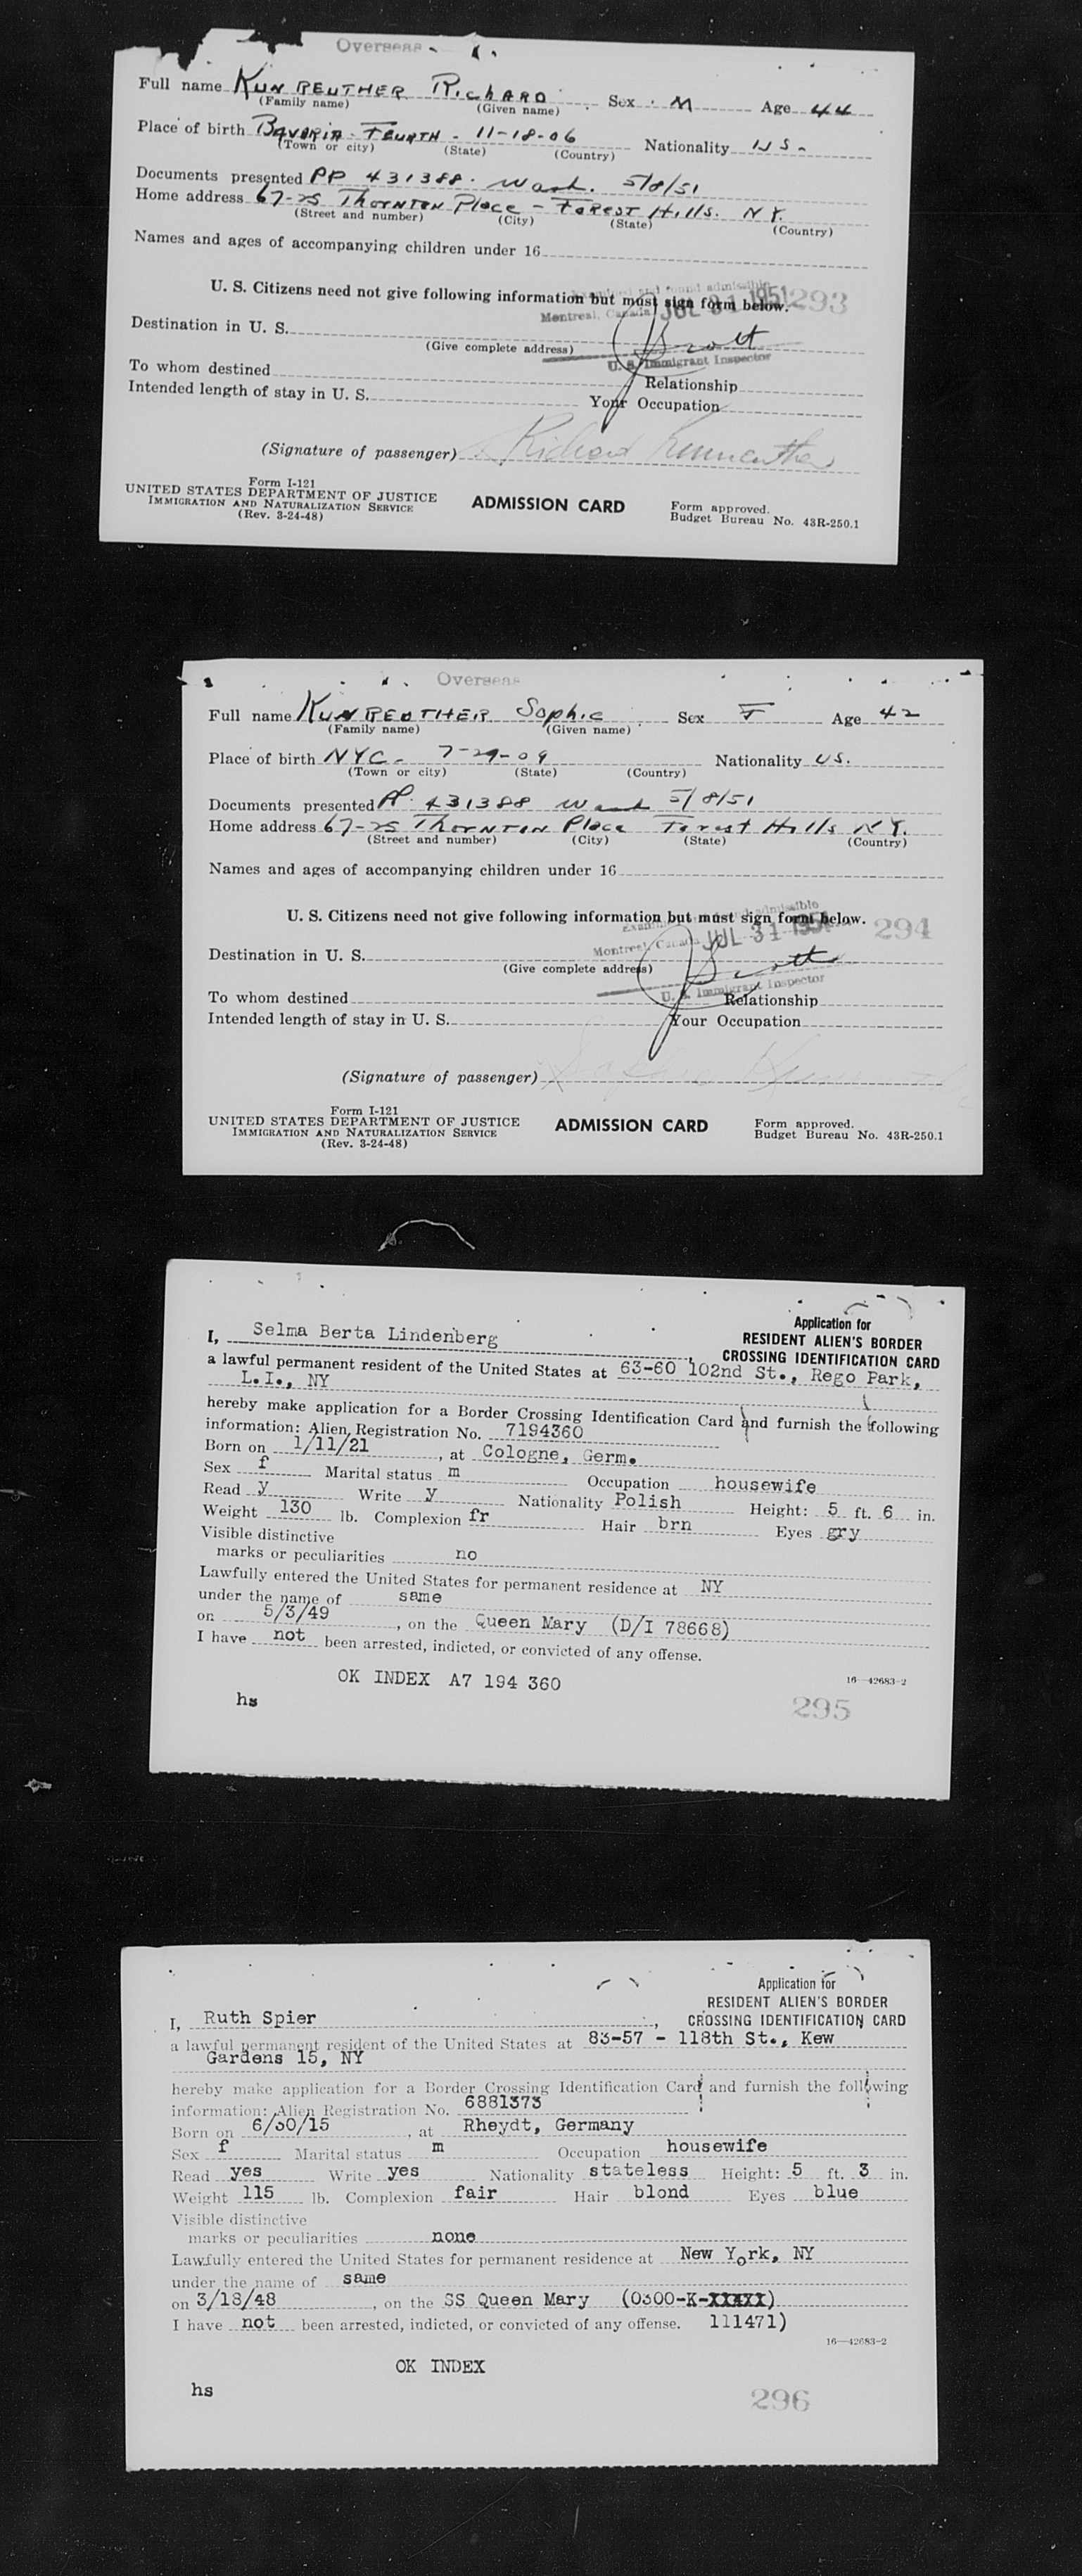 Overseas
Full name KUNREUTHER RICHARD Sex M Age 44
(Family name) (Given name)
Place of birth BAVARIA - FEURTH - 11-18-06 Nationality U.S.
(Town or city) (State) (Country)
Documents presented PP 431388. Wash. 5/8/51
Home address 67-25 THORNTON Place - FOREST Hills. N.Y.
(Street and number) (City) (State) (Country)
Names and ages of accompanying children under 16
Examined and found admissible
U. S. Citizens need not give following information but must sign form below.
Montreal, Canada JUL 31 1951 293
Destination in U. S.
(Give complete address) J Scott
U. S. Immigrant Inspector
To whom destined Relationship
Intended length of stay in U. S. Your Occupation
(Signature of passenger) Richard Kunreuther
Form I-121
UNITED STATES DEPARTMENT OF JUSTICE
IMMIGRATION AND NATURALIZATION SERVICE
(Rev. 3-24-48)
ADMISSION CARD
Form approved.
Budget Bureau No. 43R-250.1
Overseas
Full name KUNREUTHER Sophie Sex F Age 42
(Family name) (Given name)
Place of birth NYC. 7-29-09 Nationality US.
(Town or city) (State) (Country)
Documents presented PP. 431388 Wash 5/8/51
Home address 67-25 THORNTON Place Forest Hills N.Y.
(Street and number) (City) (State) (Country)
Names and ages of accompanying children under 16
Examined and found admissible
U. S. Citizens need not give following information but must sign form below.
Montreal, Canada JUL 31 1951 294
Destination in U. S.
(Give complete address) J Scott
U. S. Immigrant Inspector
To whom destined Relationship
Intended length of stay in U. S. Your Occupation
(Signature of passenger)
Form I-121
UNITED STATES DEPARTMENT OF JUSTICE
IMMIGRATION AND NATURALIZATION SERVICE
(Rev. 3-24-48)
ADMISSION CARD
Form approved.
Budget Bureau No. 43R-250.1
Application for
RESIDENT ALIEN'S BORDER
CROSSING IDENTIFICATION CARD
I, Selma Berta Lindenberg
a lawful permanent resident of the United States at 63-60 102nd St., Rego Park,
L.I., NY
hereby make application for a Border Crossing Identification Card and furnish the following
information: Alien Registration No. 7194360
Born on 1/11/21, at Cologne, Germ.
Sex f Marital status m Occupation housewife
Read y Write y Nationality Polish Height: 5 ft. 6 in.
Weight 130 lb. Complexion fr Hair brn Eyes gry
Visible distinctive
marks or peculiarities no
Lawfully entered the United States for permanent residence at NY
under the name of same
on 5/3/49, on the Queen Mary (D/I 78668)
I have not been arrested, indicted, or convicted of any offense.
OK INDEX A7 194 360
16—42683-2
hs
295
Application for
RESIDENT ALIEN'S BORDER
CROSSING IDENTIFICATION CARD
I, Ruth Spier,
a lawful permanent resident of the United States at 83-57 - 118th St., Kew
Gardens 15, NY
hereby make application for a Border Crossing Identification Card and furnish the following
information: Alien Registration No. 6881373
Born on 6/30/15, at Rheydt, Germany
Sex f Marital status m Occupation housewife
Read yes Write yes Nationality stateless Height: 5 ft. 3 in.
Weight 115 lb. Complexion fair Hair blond Eyes blue
Visible distinctive
marks or peculiarities none
Lawfully entered the United States for permanent residence at New York, NY
under the name of same
on 3/18/48, on the SS Queen Mary (0300-K-XXXXX)
I have not been arrested, indicted, or convicted of any offense. 111471)
16—42683-2
OK INDEX
hs
296